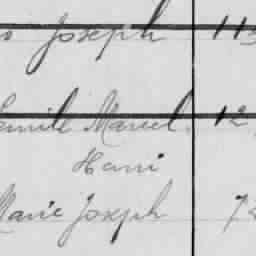 Joseph 11
Emile Marcel. 12
Henri
Marie Joseph 72